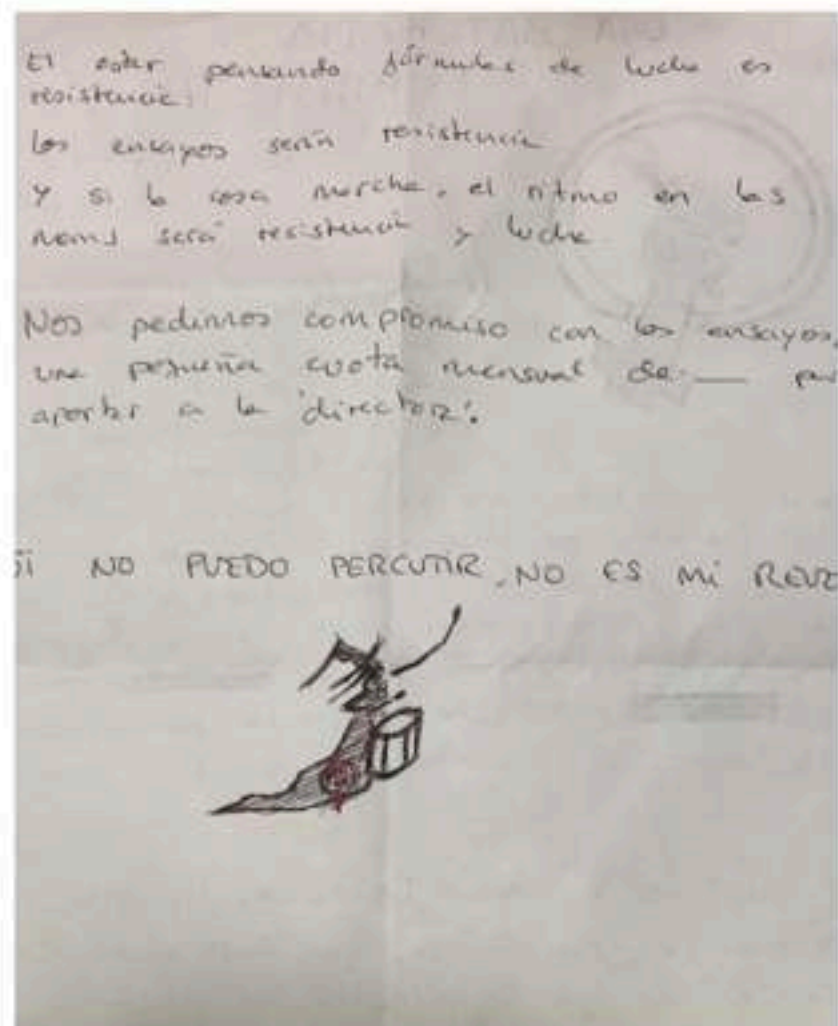 El estar pensando fórmulas de lucha es
resistencia.
Los ensayos serán resistencia
Y si la cosa marcha, el ritmo en las
será resistencia y lucha
Nos pedimos compromiso con los ensayos,
una pequeña cuota mensual de ___
aportar a la 'directora'.
Si NO PUEDO PERCUTIR, NO ES Mi